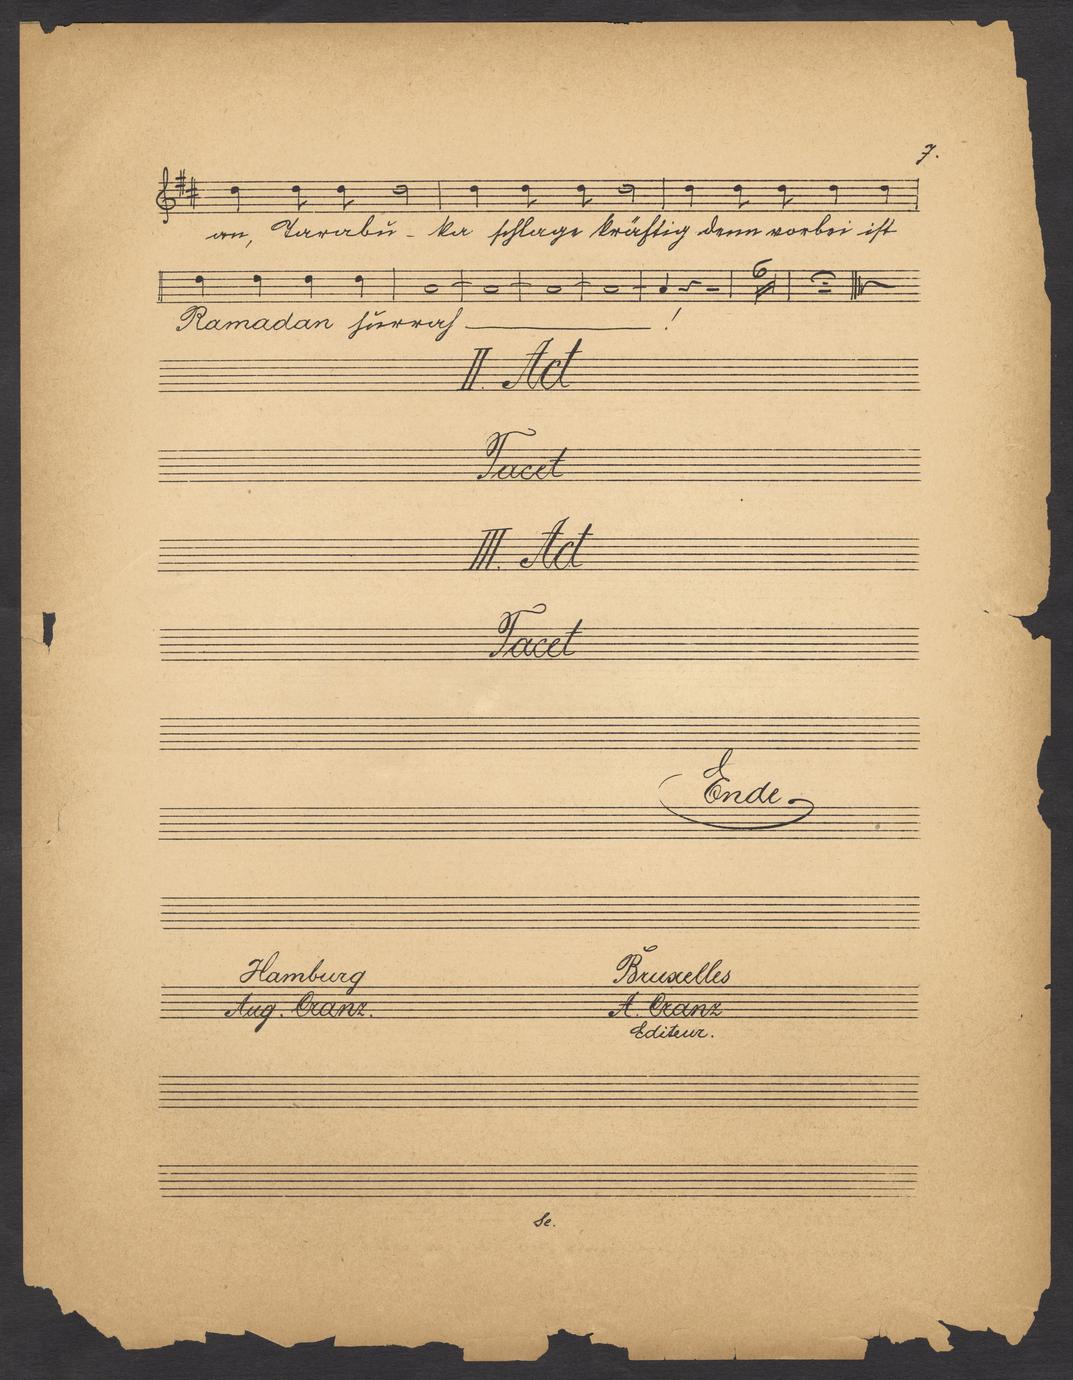 7.
an, Tarabu - ka schlage kräftig denn vorbei ist
6
Ramadan hurrah !
II. Act
Tacet
III. Act
Tacet
Ende
Hamburg Bruxelles
Aug. Cranz. A. Cranz
Editeur.
Se.